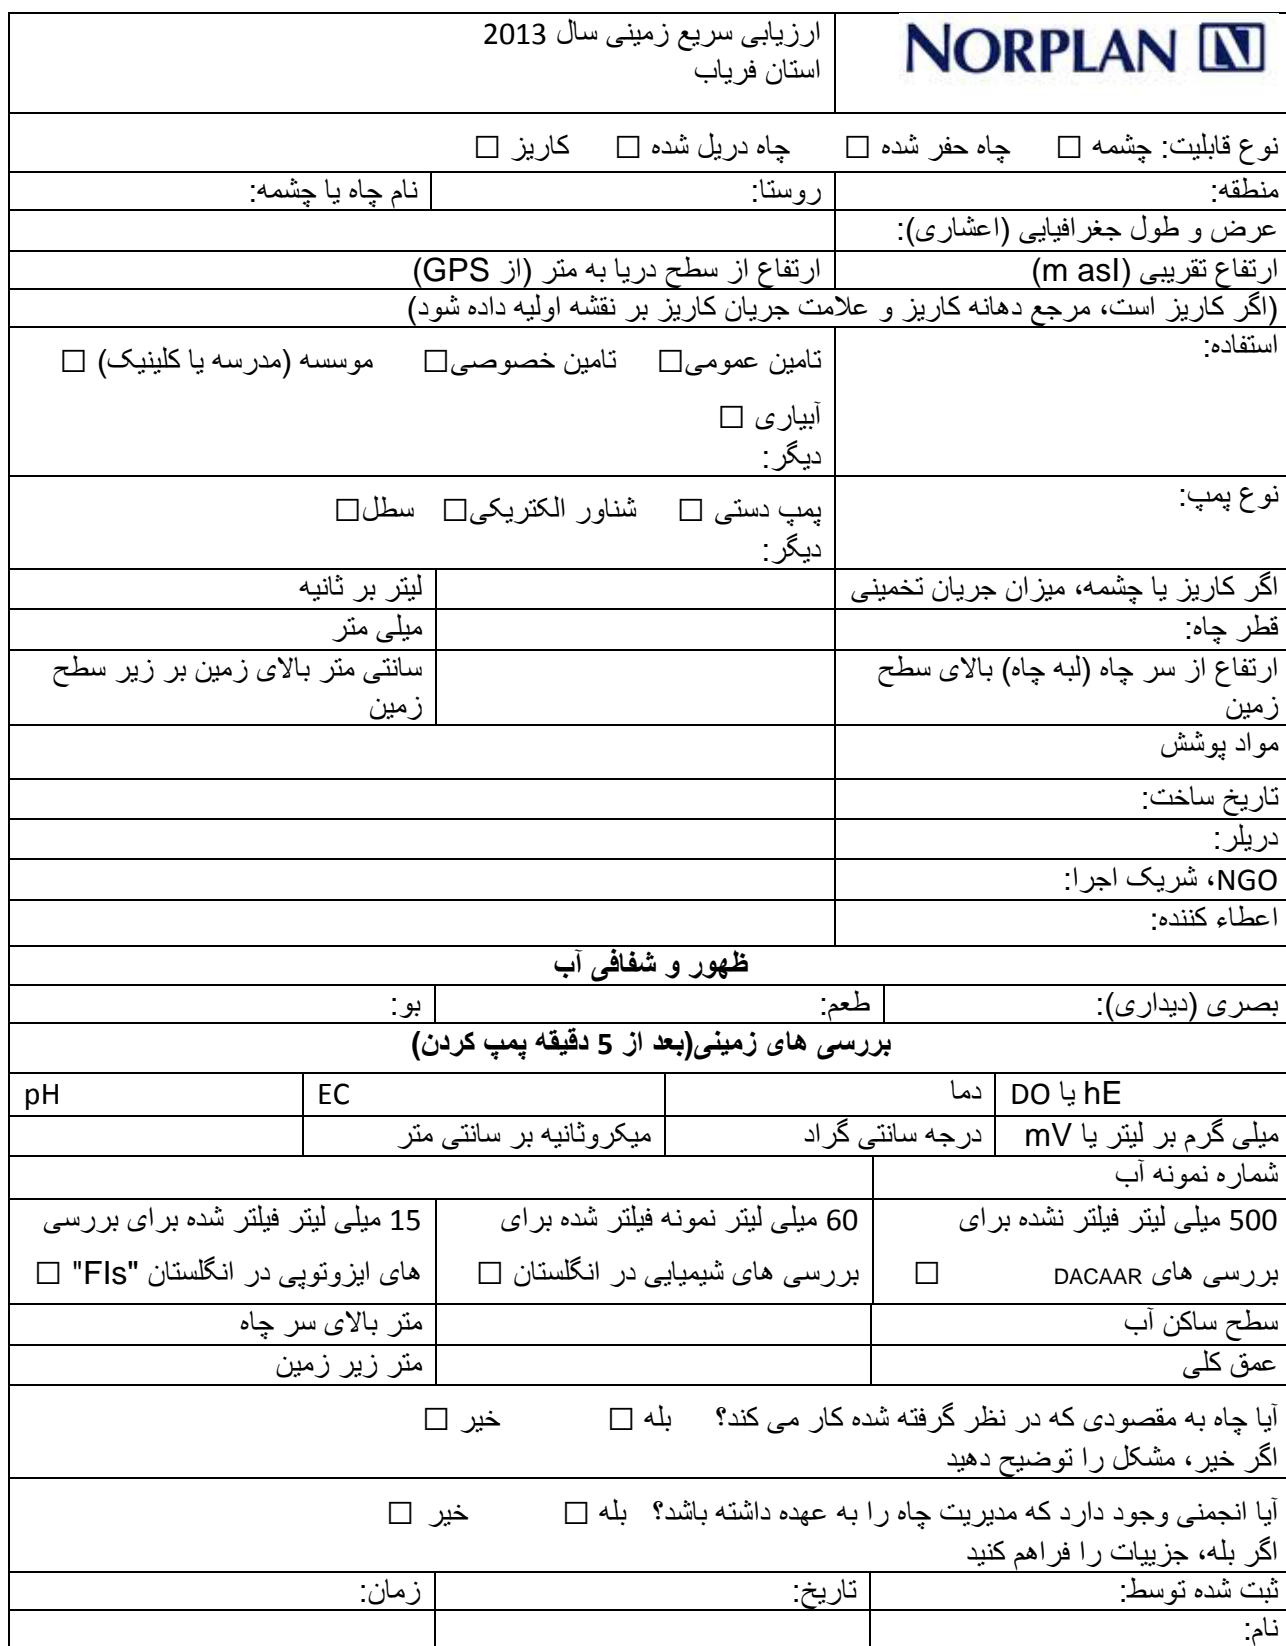 NORPLAN
ارزیابی سریع زمینی سال 2013
استان فریاب
نوع قابلیت: چشمه □ چاه حفر شده □ چاه دریل شده □ کاریز □
منطقه: روستا: نام چاه یا چشمه:
عرض و طول جغرافیایی (اعشاری):
ارتفاع تقریبی (m asl) ارتفاع از سطح دریا به متر (از GPS)
(اگر کاریز است، مرجع دهانه کاریز و علامت جریان کاریز بر نقشه اولیه داده شود)
استفاده: تامین عمومی□ تامین خصوصی□ موسسه (مدرسه یا کلینیک) □
آبیاری □
دیگر:
نوع پمپ: پمپ دستی □ شناور الکتریکی□ سطل□
دیگر:
اگر کاریز یا چشمه، میزان جریان تخمینی لیتر بر ثانیه
قطر چاه: میلی متر
ارتفاع از سر چاه (لبه چاه) بالای سطح سانتی متر بالای زمین بر زیر سطح
زمین زمین
مواد پوشش
تاریخ ساخت:
دریلر:
NGO، شریک اجرا:
اعطاء کننده:
ظهور و شفافی آب
بصری (دیداری): طعم: بو:
بررسی های زمینی(بعد از 5 دقیقه پمپ کردن)
hE یا DO دما EC pH
میلی گرم بر لیتر یا mV درجه سانتی گراد میکروثانیه بر سانتی متر
شماره نمونه آب
500 میلی لیتر فیلتر نشده برای 60 میلی لیتر نمونه فیلتر شده برای 15 میلی لیتر فیلتر شده برای بررسی
بررسی های DACAAR □ بررسی های شیمیایی در انگلستان □ های ایزوتوپی در انگلستان "FIs" □
سطح ساکن آب متر بالای سر چاه
عمق کلی متر زیر زمین
آیا چاه به مقصودی که در نظر گرفته شده کار می کند؟ بله □ خیر □
اگر خیر، مشکل را توضیح دهید
آیا انجمنی وجود دارد که مدیریت چاه را به عهده داشته باشد؟ بله □ خیر □
اگر بله، جزییات را فراهم کنید
ثبت شده توسط: تاریخ: زمان:
نام: